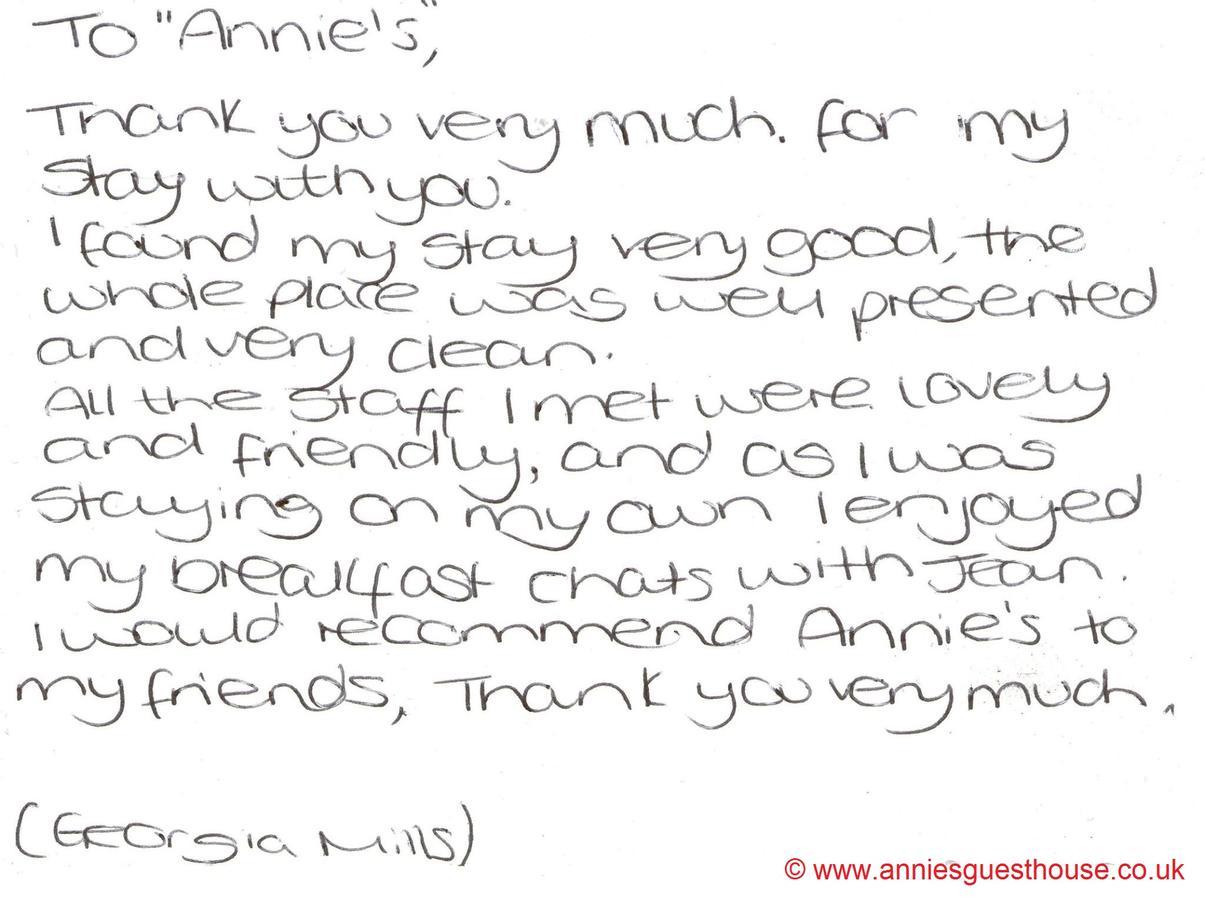 To "Annie's",
Thank you very much. for my
stay with you.
I found my stay very good, the
whole place was well presented
and very clean.
All the staff I met were lovely
and friendly, and as I was
staying on my own I enjoyed
my breakfast chats with Jean.
I would recommend Annie's to
my friends, Thank you very much.
(Georgia Mills)
© www.anniesguesthouse.co.uk